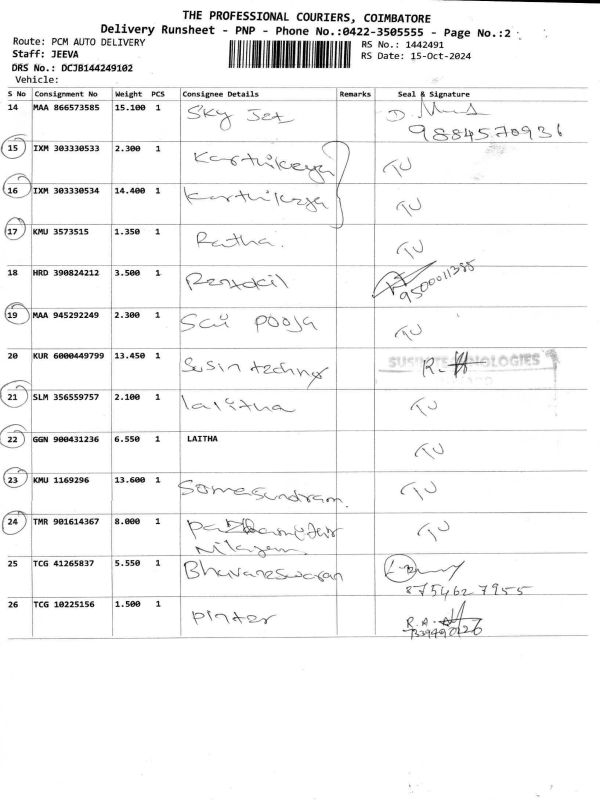 THE PROFESSIONAL COURIERS, COIMBATORE
Delivery Runsheet - PNP - Phone No.:0422-3505555 - Page No.:2
Route: PCM AUTO DELIVERY
RS No.: 1442491
Staff: JEEVA
RS Date: 15-Oct-2024
DRS No.: DCJB144249102
Vehicle:
S No Consignment No Weight PCS Consignee Details Remarks Seal & Signature
14 MAA 866573585 15.100 1 Sky Jet
9884570936
15 IXM 303330533 2.300 1 Karthikeya TU
16 IXM 303330534 14.400 1 Karthikeya TU
17 KMU 3573515 1.350 1 Ratha. TU
18 HRD 390824212 3.500 1 Rentokil 9500011385
19 MAA 945292249 2.300 1 Sai pooja TU
20 KUR 6000449799 13.450 1 Susin techno
21 SLM 356559757 2.100 1 lalitha TU
22 GGN 900431236 6.550 1 LAITHA TU
23 KMU 1169296 13.600 1 Somasundram. TU
24 TMR 901614367 8.000 1 TU
Nilayam
25 TCG 41265837 5.550 1 Bhuvaneswaran
8754627955
26 TCG 10225156 1.500 1 R.A.